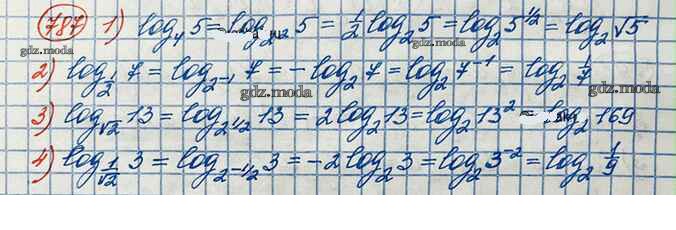 787 1) log₄ 5 = log₂² 5 = ½ log₂ 5 = log₂ 5^½ = log₂ √5
gdz.moda gdz.moda
2) log_½ 7 = log₂₋₁ 7 = - log₂ 7 = log₂ 7⁻¹ = log₂ 1/7
gdz.moda gdz.moda
3) log_√2 13 = log_2^½ 13 = 2 log₂ 13 = log₂ 13² = log₂ 169
gdz.moda
4) log_1/√2 3 = log_2^-½ 3 = -2 log₂ 3 = log₂ 3⁻² = log₂ 1/9